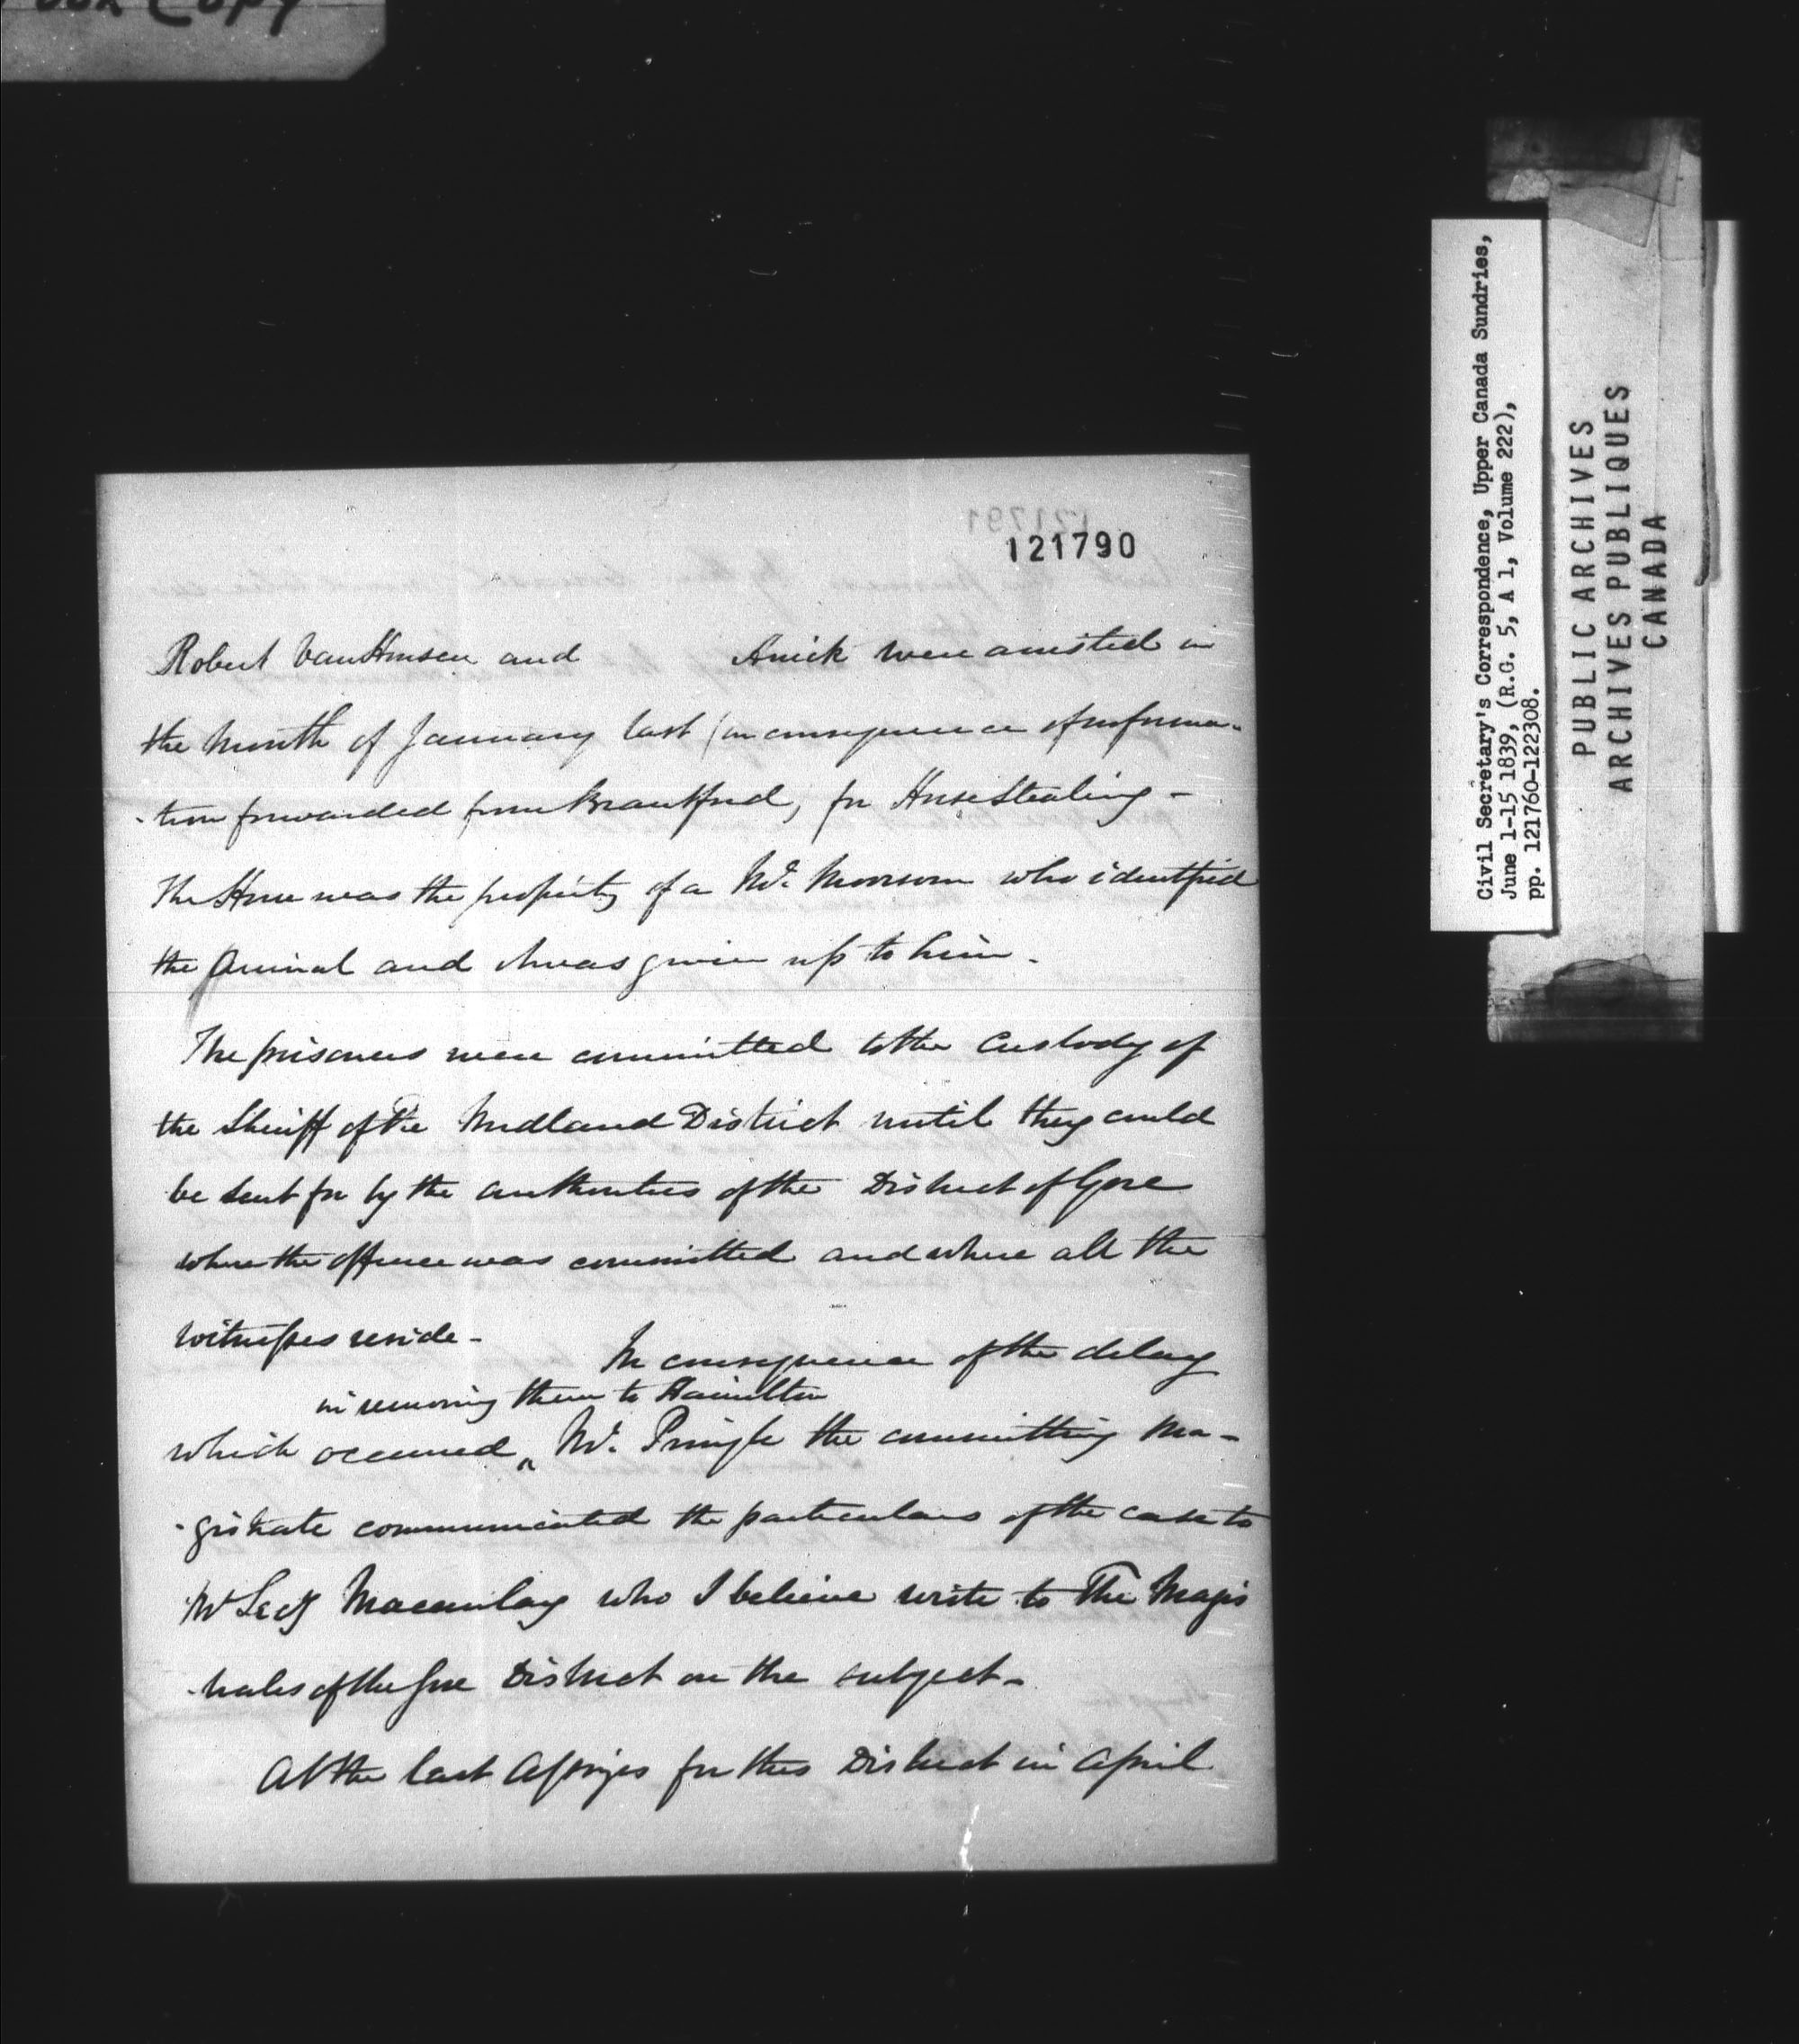 Copy
121790
Robert VanHousen and Amick were arrested in
the Month of January last (in consequence of informa-
-tion forwarded from Brantford, for Horse Stealing -
The Horse was the property of a Mr. Moorsom who identified
the Animal and it was given up to him.
The prisoners were committed to the Custody of
the Sheriff of the Midland District until they could
be sent for by the authorities of the District of Gore
where the offence was committed and where all the
witnesses reside -
In consequence of the delay
in removing them to Hamilton
which occurred Mr. Pringle the committing Ma-
-gistrate communicated the particulars of the case to
Mr Secy Macaulay who I believe wrote to The Magis
-trates of the Gore District on the subject -
At the last Assizes for this District in April
Civil Secretary's Correspondence, Upper Canada Sundries,
June 1-15 1839, (R.G. 5, A 1, Volume 222),
pp. 121760-122308.
PUBLIC ARCHIVES
ARCHIVES PUBLIQUES
CANADA